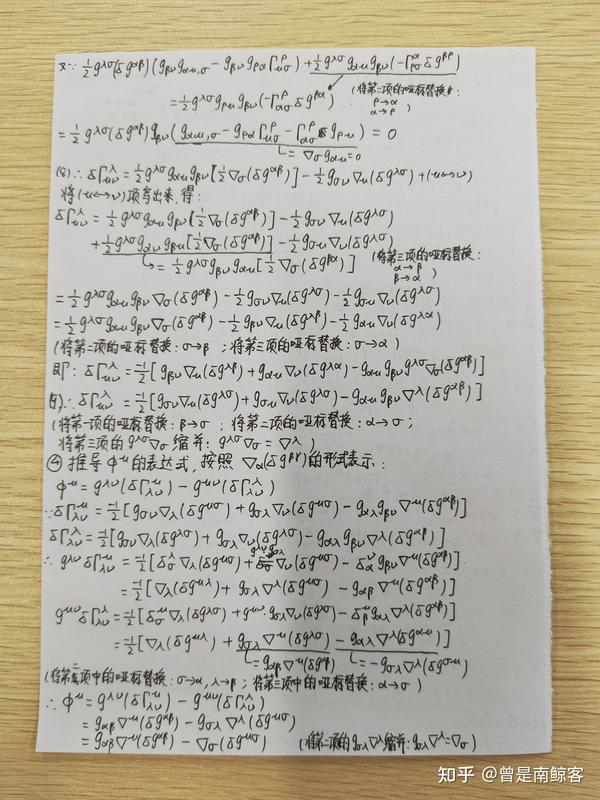 又∵ ½g^{λσ}(δg^{αβ})(g_{βν}g_{αμ,σ} − g_{βν}g_{ρα}Γ^ρ_{μσ}) + ½g^{λσ}g_{αμ}g_{βν}(−Γ^α_{ρσ}δg^{βρ})
= ½g^{λσ}g_{ρμ}g_{βν}(−Γ^ρ_{ασ}δg^{βα}) (将第二项的哑标替换: ρ→α α→ρ)
= ½g^{λσ}(δg^{αβ})g_{βν}(g_{αμ,σ} − g_{ρα}Γ^ρ_{μσ} − Γ^ρ_{ασ}g_{ρμ}) = 0
= ∇_σ g_{αμ}=0
∴ δΓ^λ_{μν} = ½g^{λσ}g_{αμ}g_{βν}[½∇_σ(δg^{αβ})] − ½g_{σν}∇_μ(δg^{λσ}) + (μ↔ν)
将(μ↔ν)项写出来,得:
δΓ^λ_{μν} = ½g^{λσ}g_{αμ}g_{βν}[½∇_σ(δg^{αβ})] − ½g_{σν}∇_μ(δg^{λσ})
+ ½g^{λσ}g_{αν}g_{βμ}[½∇_σ(δg^{αβ})] − ½g_{σμ}∇_ν(δg^{λσ})
= ½g^{λσ}g_{βν}g_{αμ}[½∇_σ(δg^{βα})] (将第三项的哑标替换: α→β β→α)
= ½g^{λσ}g_{αμ}g_{βν}∇_σ(δg^{αβ}) − ½g_{σν}∇_μ(δg^{λσ}) − ½g_{σμ}∇_ν(δg^{λσ})
= ½g^{λσ}g_{αμ}g_{βν}∇_σ(δg^{αβ}) − ½g_{βν}∇_μ(δg^{λβ}) − ½g_{αμ}∇_ν(δg^{λα})
(将第二项的哑标替换: σ→β ; 将第三项的哑标替换: σ→α)
即: δΓ^λ_{μν} = −½[g_{βν}∇_μ(δg^{λβ}) + g_{αμ}∇_ν(δg^{λα}) − g_{αμ}g_{βν}g^{λσ}∇_σ(δg^{αβ})]
∴ δΓ^λ_{μν} = −½[g_{σν}∇_μ(δg^{λσ}) + g_{σμ}∇_ν(δg^{λσ}) − g_{αμ}g_{βν}∇^λ(δg^{αβ})]
(将第一项的哑标替换: β→σ ; 将第二项的哑标替换: α→σ ;
将第三项的g^{λσ}∇_σ 缩并: g^{λσ}∇_σ = ∇^λ)
④ 推导Φ^μ的表达式,按照∇_α(δg^{βγ})的形式表示:
Φ^μ = g^{λν}(δΓ^μ_{λν}) − g^{μν}(δΓ^λ_{λν})
∵ δΓ^μ_{λν} = −½[g_{σν}∇_λ(δg^{μσ}) + g_{σλ}∇_ν(δg^{μσ}) − g_{αλ}g_{βν}∇^μ(δg^{αβ})]
δΓ^λ_{λν} = −½[g_{σν}∇_λ(δg^{λσ}) + g_{σλ}∇_ν(δg^{λσ}) − g_{αλ}g_{βν}∇^λ(δg^{αβ})]
∴ g^{λν}δΓ^μ_{λν} = −½[δ^λ_σ∇_λ(δg^{μσ}) + g^{λν}g_{σλ}∇_ν(δg^{μσ}) − δ^ν_α g_{βν}∇^μ(δg^{αβ})]
= −½[∇_λ(δg^{μλ}) + g_{σλ}∇^λ(δg^{μσ}) − g_{αβ}∇^μ(δg^{αβ})]
g^{μν}δΓ^λ_{λν} = −½[δ^μ_σ∇_λ(δg^{λσ}) + g^{μν}g_{σλ}∇_ν(δg^{λσ}) − δ^μ_β g_{αλ}∇^λ(δg^{αβ})]
= −½[∇_λ(δg^{μλ}) + g_{σλ}∇^μ(δg^{λσ}) − g_{αλ}∇^λ(δg^{αμ})]
= g_{αβ}∇^μ(δg^{αβ}) = −g_{σλ}∇^λ(δg^{σμ})
(将第二项中的哑标替换: σ→α, λ→β ; 将第三项中的哑标替换: α→σ)
∴ Φ^μ = g^{λν}(δΓ^μ_{λν}) − g^{μν}(δΓ^λ_{λν})
= g_{αβ}∇^μ(δg^{αβ}) − g_{σλ}∇^λ(δg^{μσ})
= g_{αβ}∇^μ(δg^{αβ}) − ∇_σ(δg^{μσ}) (将第二项的g_{σλ}∇^λ缩并: g_{σλ}∇^λ=∇_σ)
知乎 @曾是南鲸客